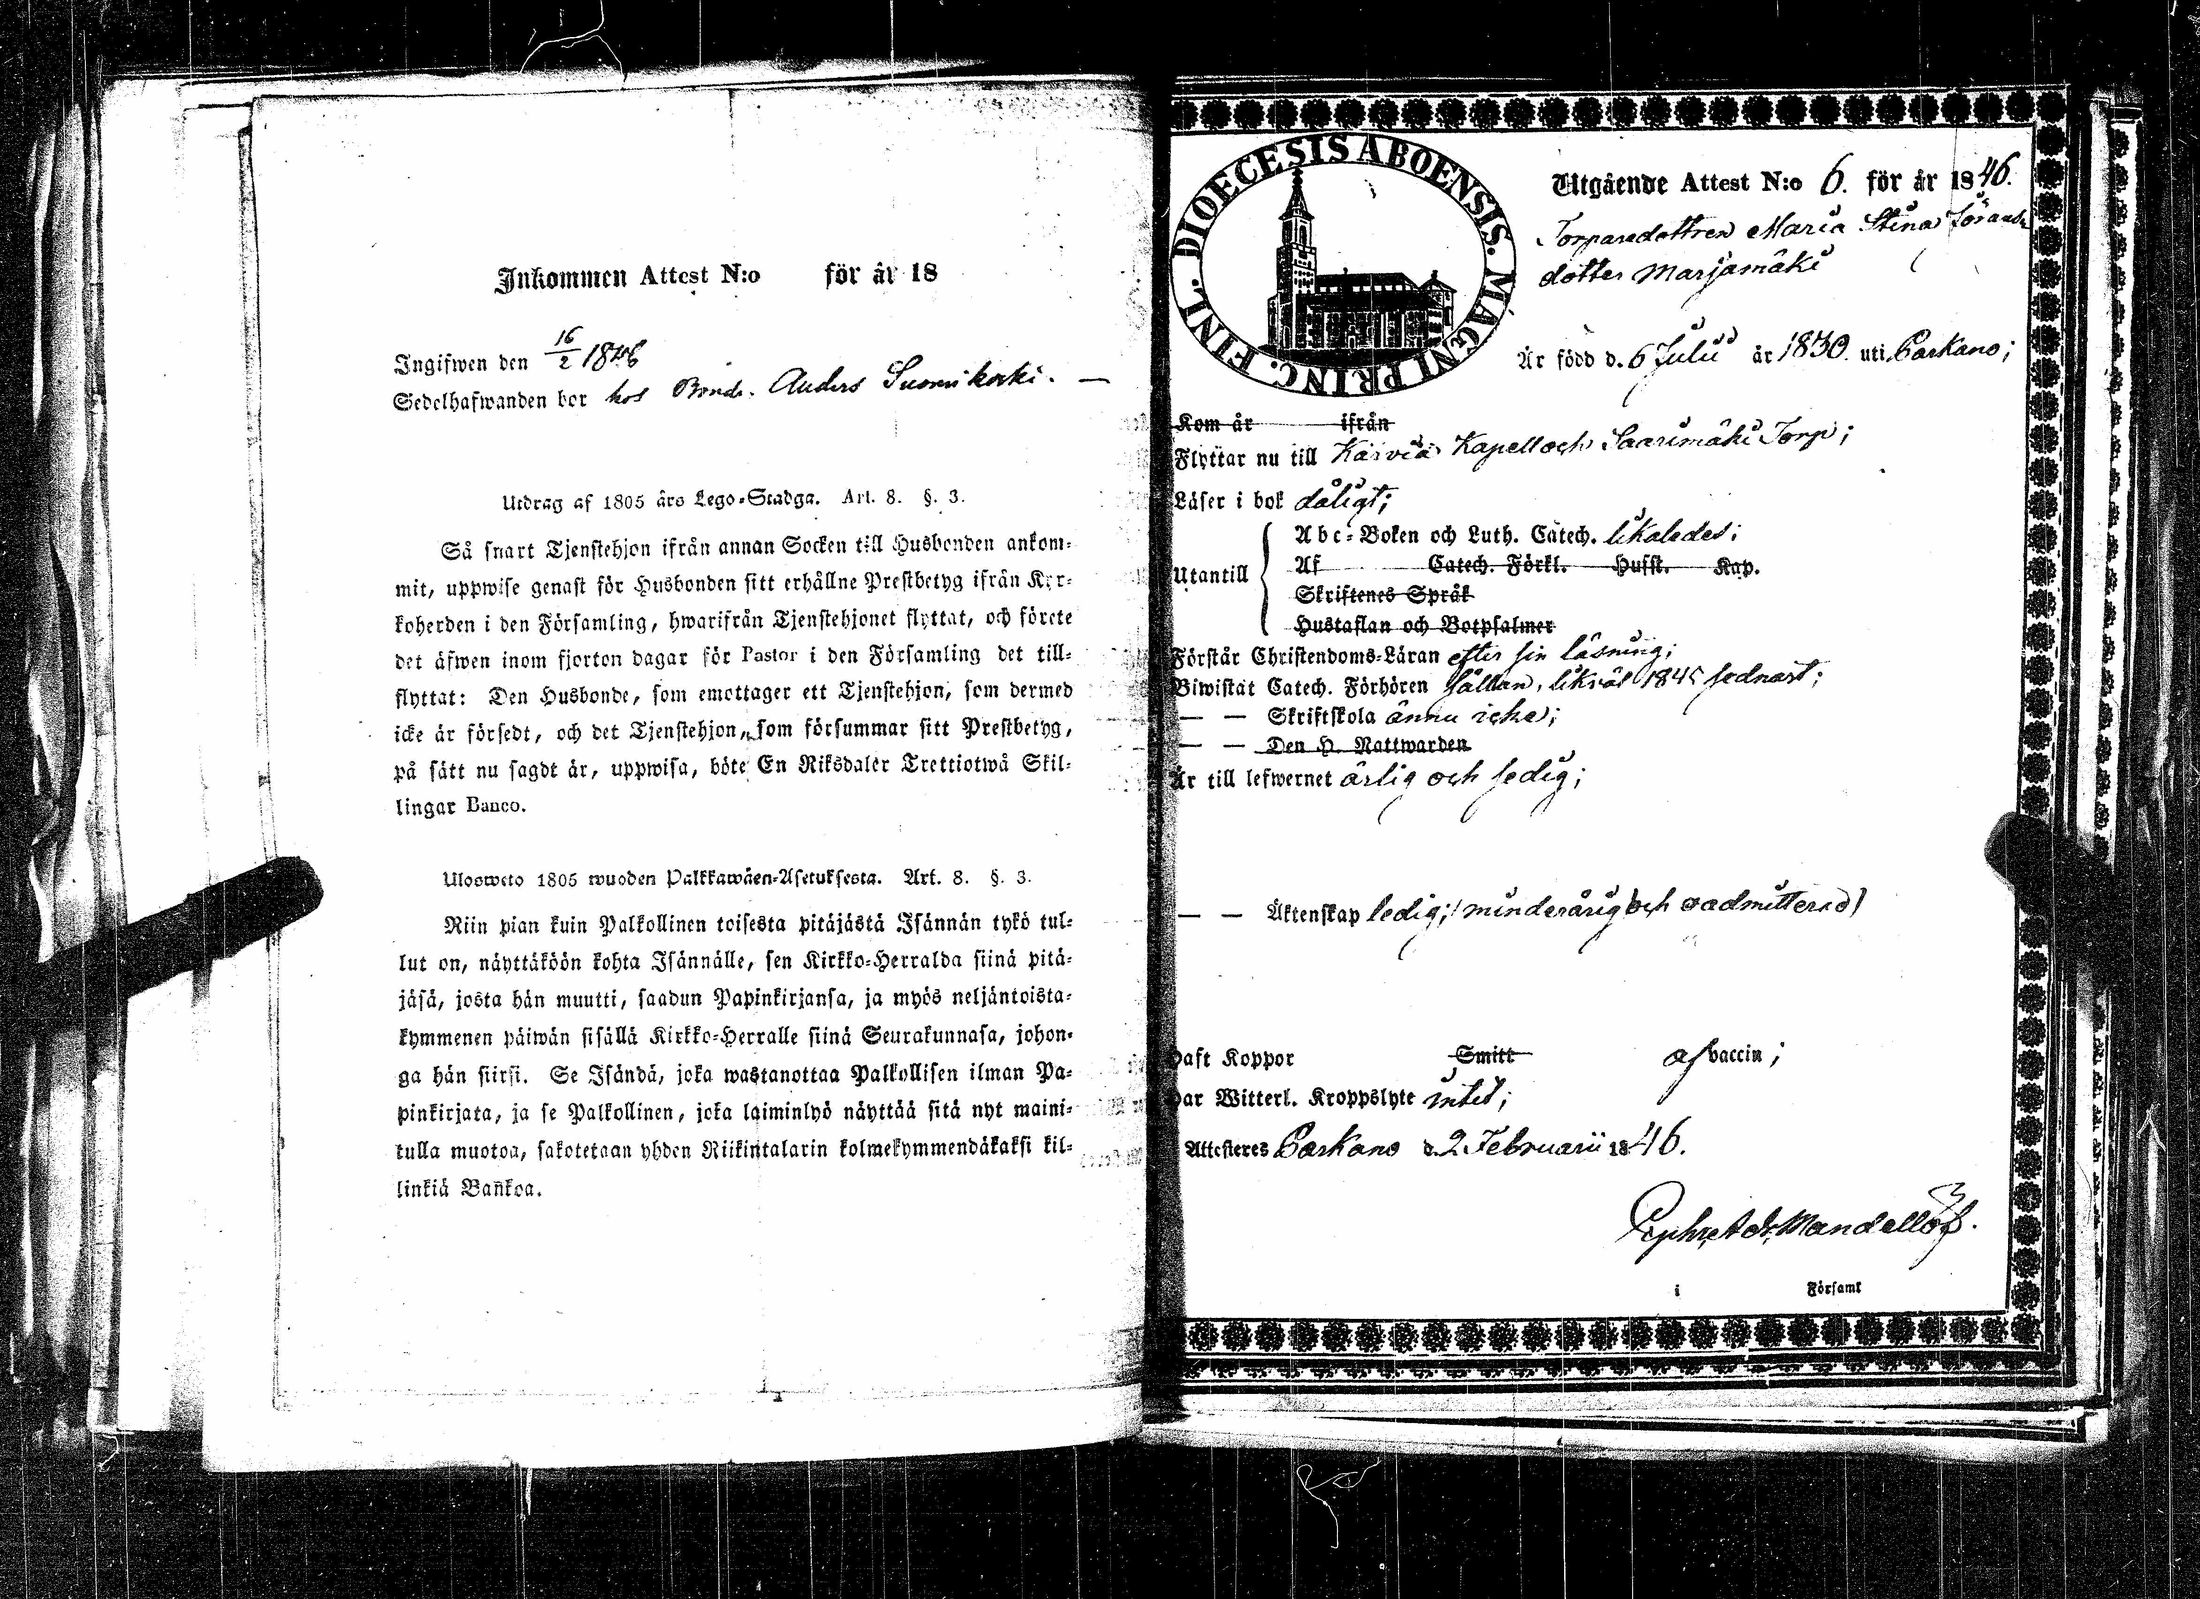 Inkommen Attest N:o för år 18
Ingifwen den 16/2 1846
Sedelhafwanden bor hos Bond. Anders Suomikoski. —
Utdrag af 1805 års Lego-Stadga. Art. 8. §. 3.
Så snart Tjenstehjon ifrån annan Socken till Husbonden ankom-
mit, uppwise genast för Husbonden sitt erhållne Prestbetyg ifrån Kyr-
koherden i den Församling, hwarifrån Tjenstehjonet flyttat, och förete
det äfwen inom fjorton dagar för Pastor i den Församling det till-
flyttat: Den Husbonde, som emottager ett Tjenstehjon, som dermed
icke är försedt, och det Tjenstehjon, som försummar sitt Prestbetyg,
på sätt nu sagdt är, uppwisa, böte En Riksdaler Trettiotwå Skil-
lingar Banco.
Ulosweto 1805 wuoden Palkkawäen-Asetuksesta. Art. 8. §. 3.
Niin pian kuin Palkollinen toisesta pitäjästä Isännän tykö tul-
lut on, näyttäköön kohta Isännälle, sen Kirkko-Herralda siinä pitä-
jäsä, josta hän muutti, saadun Papinkirjansa, ja myös neljäntoista-
kymmenen päiwän sisällä Kirkko-Herralle siinä Seurakunnasa, johon-
ga hän siirsi. Se Isändä, joka wastanottaa Palkollisen ilman Pa-
pinkirjata, ja se Palkollinen, joka laiminlyö näyttää sitä nyt maini-
tulla muotoa, sakotetaan yhden Riikintalarin kolmekymmendäkaksi kil-
linkiä Bankoa.
DIOECESIS ABOENSIS. MAGNI PRINC. FINL.
Utgående Attest N:o 6. för år 1846.
Torparedottren Maria Stina Jörans-
dotter Marjamäki
Är född d. 6 Julii år 1830. uti Parkano;
Kom år ifrån
Flyttar nu till Karvia Kapell och Saarimäki Torp;
Läser i bok dåligt;
Utantill
Abc-Boken och Luth. Catech. likaledes;
Af Catech. Förkl. Husst. Kap.
Skriftenes Språk
Hustaflan och Botpsalmer
Förstår Christendoms-Läran efter sin läsning;
Biwistat Catech. Förhören sällan, likväl 1845 sednast;
— — Skriftskola ännu icke;
— — Den H. Nattwarden
Är till lefwernet ärlig och sedig;
— — Äktenskap ledig; (minderårig och oadmitterad)
Haft Koppor Smitt af vaccin;
Har Witterl. Kroppslyte intet;
Attesteres Parkano d. 2 Februarii 1846.
Mandellöf.
i Församl